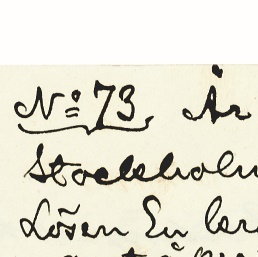 No 73. År
Stockholm
Lösen En kro